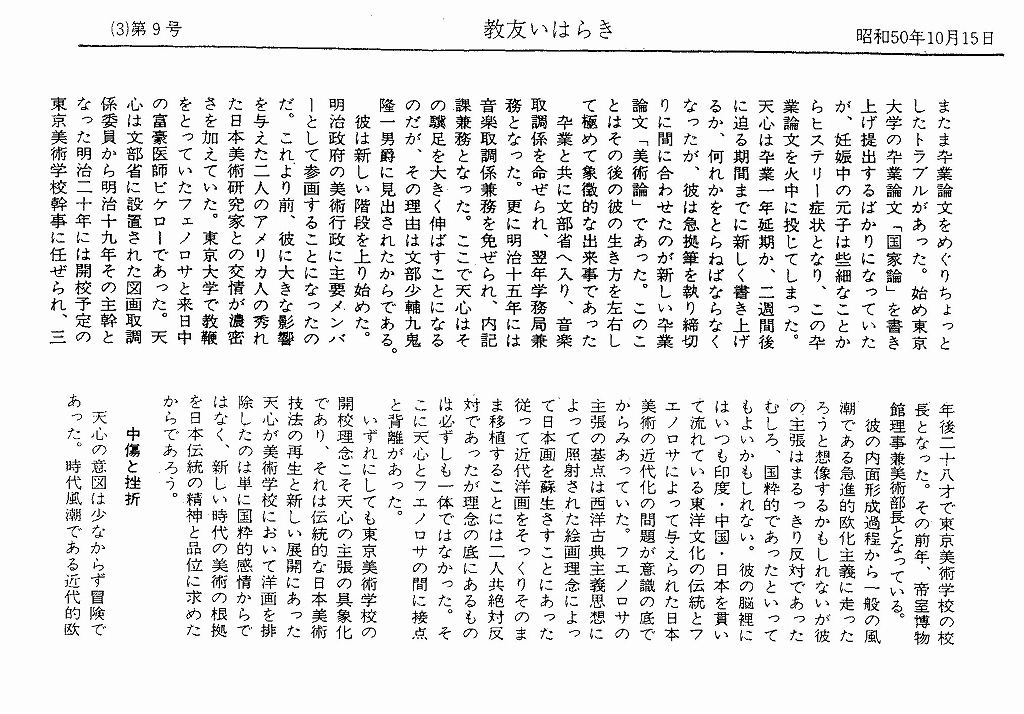 (3)第9号
教友いはらき
昭和50年10月15日
またま卒業論文をめぐりちょっと
したトラブルがあった。始め東京
大学の卒業論文「国家論」を書き
上げ提出するばかりになっていた
が、妊娠中の元子は些細なことか
らヒステリー症状となり、この卒
業論文を火中に投じてしまった。
天心は卒業一年延期か、二週間後
に迫る期間までに新しく書き上げ
るか、何れかをとらねばならなく
なったが、彼は急拠筆を執り締切
りに間に合わせたのが新しい卒業
論文「美術論」であった。このこ
とはその後の彼の生き方を左右し
て極めて象徴的な出来事であった
卒業と共に文部省へ入り、音楽
取調係を命ぜられ、翌年学務局兼
務となった。更に明治十五年には
音楽取調係兼務を免ぜられ、内記
課兼務となった。ここで天心はそ
の驥足を大きく伸ばすことになる
のだが、その理由は文部少輔九鬼
隆一男爵に見出されたからである。
彼は新しい階段を上り始めた。
明治政府の美術行政に主要メンバ
ーとして参画することになったの
だ。これより前、彼に大きな影響
を与えた二人のアメリカ人の秀れ
た日本美術研究家との交情が濃密
さを加えていた。東京大学で教鞭
をとっていたフェノロサと来日中
の富豪医師ビゲローであった。天
心は文部省に設置された図画取調
係委員から明治十九年その主幹と
なった明治二十年には開校予定の
東京美術学校幹事に任ぜられ、三
年後二十八才で東京美術学校の校
長となった。その前年、帝室博物
館理事兼美術部長となっている。
彼の内面形成過程から一般の風
潮である急進的欧化主義に走った
ろうと想像するかもしれないが彼
の主張はまるっきり反対であった
むしろ、国粋的であったといって
もよいかもしれない。彼の脳裡に
はいつも印度・中国・日本を貫い
て流れている東洋文化の伝統とフ
エノロサによって与えられた日本
美術の近代化の問題が意識の底で
からみあっていた。フエノロサの
主張の基点は西洋古典主義思想に
よって照射された絵画理念によっ
て日本画を蘇生さすことにあった
従って近代洋画をそっくりそのま
ま移植することには二人共絶対反
対であったが理念の底にあるもの
は必ずしも一体ではなかった。そ
こに天心とフエノロサの間に接点
と背離があった。
いずれにしても東京美術学校の
開校理念こそ天心の主張の具象化
であり、それは伝統的な日本美術
技法の再生と新しい展開にあった
天心が美術学校において洋画を排
除したのは単に国粋的感情からで
はなく、新しい時代の美術の根拠
を日本伝統の精神と品位に求めた
からであろう。
中傷と挫折
天心の意図は少なからず冒険で
あった。時代風潮である近代的欧